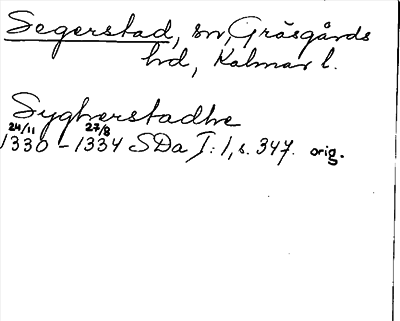 Segerstad, sn, Gräsgårds
hd, Kalmar l.
Sygherstadhe
24/11 27/8
1330 - 1334 SDa I: 1, s. 347. orig.